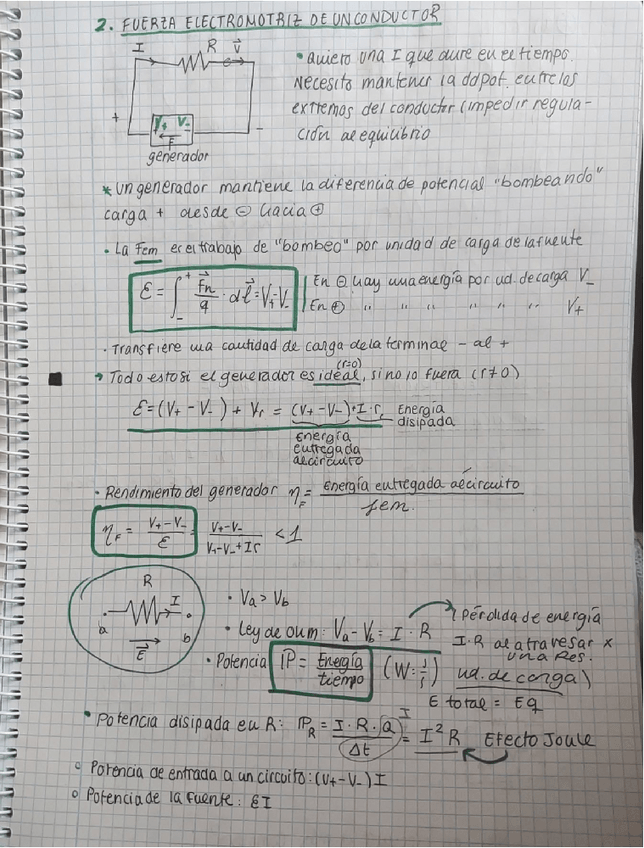 2. FUERZA ELECTROMOTRIZ DE UN CONDUCTOR
I R V⃗
+ V+ V- -
E⃗
generador
• Quiero una I que dure en el tiempo.
Necesito mantener la ddpot. entre los
extremos del conductor (impedir regula-
ción al equilibrio
* Un generador mantiene la diferencia de potencial "bombeando"
carga + desde ⊖ hacia ⊕
• La Fem es el trabajo de "bombeo" por unidad de carga de la fuente
ε = ∫₋⁺ F⃗n/q · dl⃗ = V+ - V-
En ⊖ hay una energía por ud. de carga V-
En ⊕ " " " " " " V+
• Transfiere una cantidad de carga de la terminal - al +
→ Todo esto si el generador es ideal, si no lo fuera (r≠0)
(r=0)
ε = (V+ - V-) + Vr = (V+ - V-) + I · r, Energía disipada
energía
entregada
al circuito
• Rendimiento del generador ηF = energía entregada al circuito / fem.
ηF = V+ - V- / ε = V+ - V- / V+ - V- + Ir < 1
R
I
a b
E⃗
• Va > Vb
• Ley de Oum: Va - Vb = I · R
Pérdida de energía
I·R al atravesar x
una Res.
• Potencia P = Energía / tiempo (W = J/s)
ud. de carga)
E total = Eq
• Potencia disipada en R: PR = I · R · Q / Δt = I²R Efecto Joule
I
○ Potencia de entrada a un circuito: (V+ - V-) I
○ Potencia de la fuente: εI